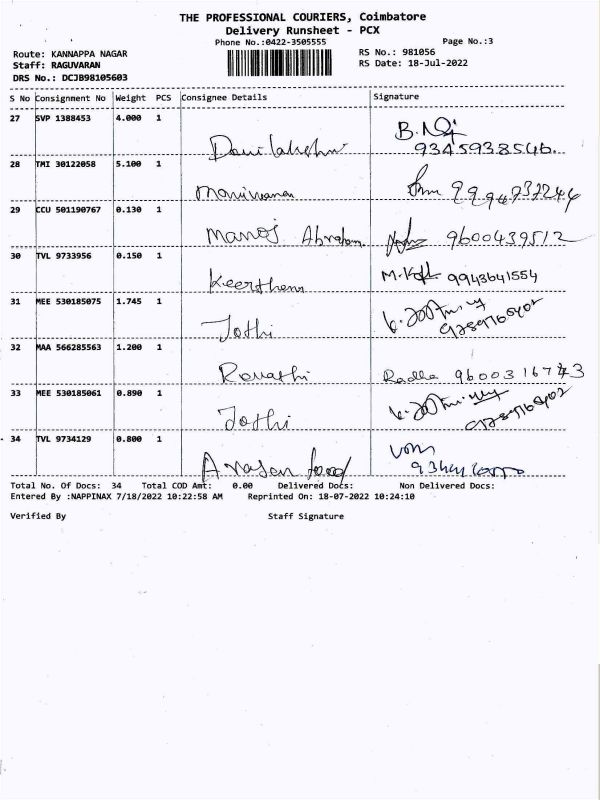 THE PROFESSIONAL COURIERS, Coimbatore
Delivery Runsheet - PCX
Phone No.:0422-3505555
Page No.:3
Route: KANNAPPA NAGAR
RS No.: 981056
Staff: RAGUVARAN
RS Date: 18-Jul-2022
DRS No.: DCJB98105603
S No Consignment No Weight PCS Consignee Details Signature
27 SVP 1388453 4.000 1
9345938546.
28 TMI 30122058 5.100 1
29 CCU 501190767 0.130 1
Manoj Abraham 9600439512
30 TVL 9733956 0.150 1
Keerthena 9943641554
31 MEE 530185075 1.745 1
Jothi
32 MAA 566285563 1.200 1
Revathi Radha
33 MEE 530185061 0.890 1
Jothi
34 TVL 9734129 0.800 1
Total No. Of Docs: 34 Total COD Amt: 0.00 Delivered Docs: Non Delivered Docs:
Entered By :NAPPINAX 7/18/2022 10:22:58 AM Reprinted On: 18-07-2022 10:24:10
Verified By Staff Signature